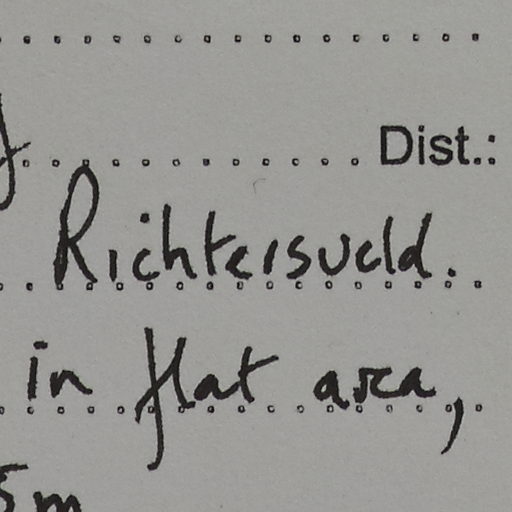 Dist.:
Richtersveld.
in flat area,
5m